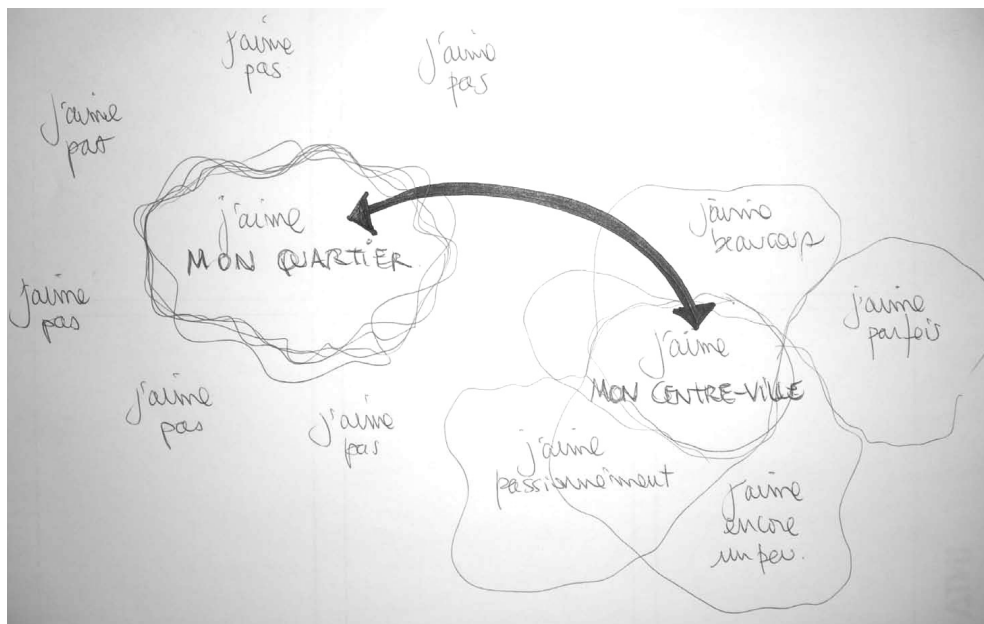 j'aime
pas
j'aime
pas
j'aime
pas
j'aime
MON QUARTIER
j'aime
pas
j'aime
pas
j'aime
pas
j'aime
beaucoup
j'aime
parfois
j'aime
MON CENTRE-VILLE
j'aime
passionnément
j'aime
encore
un peu.